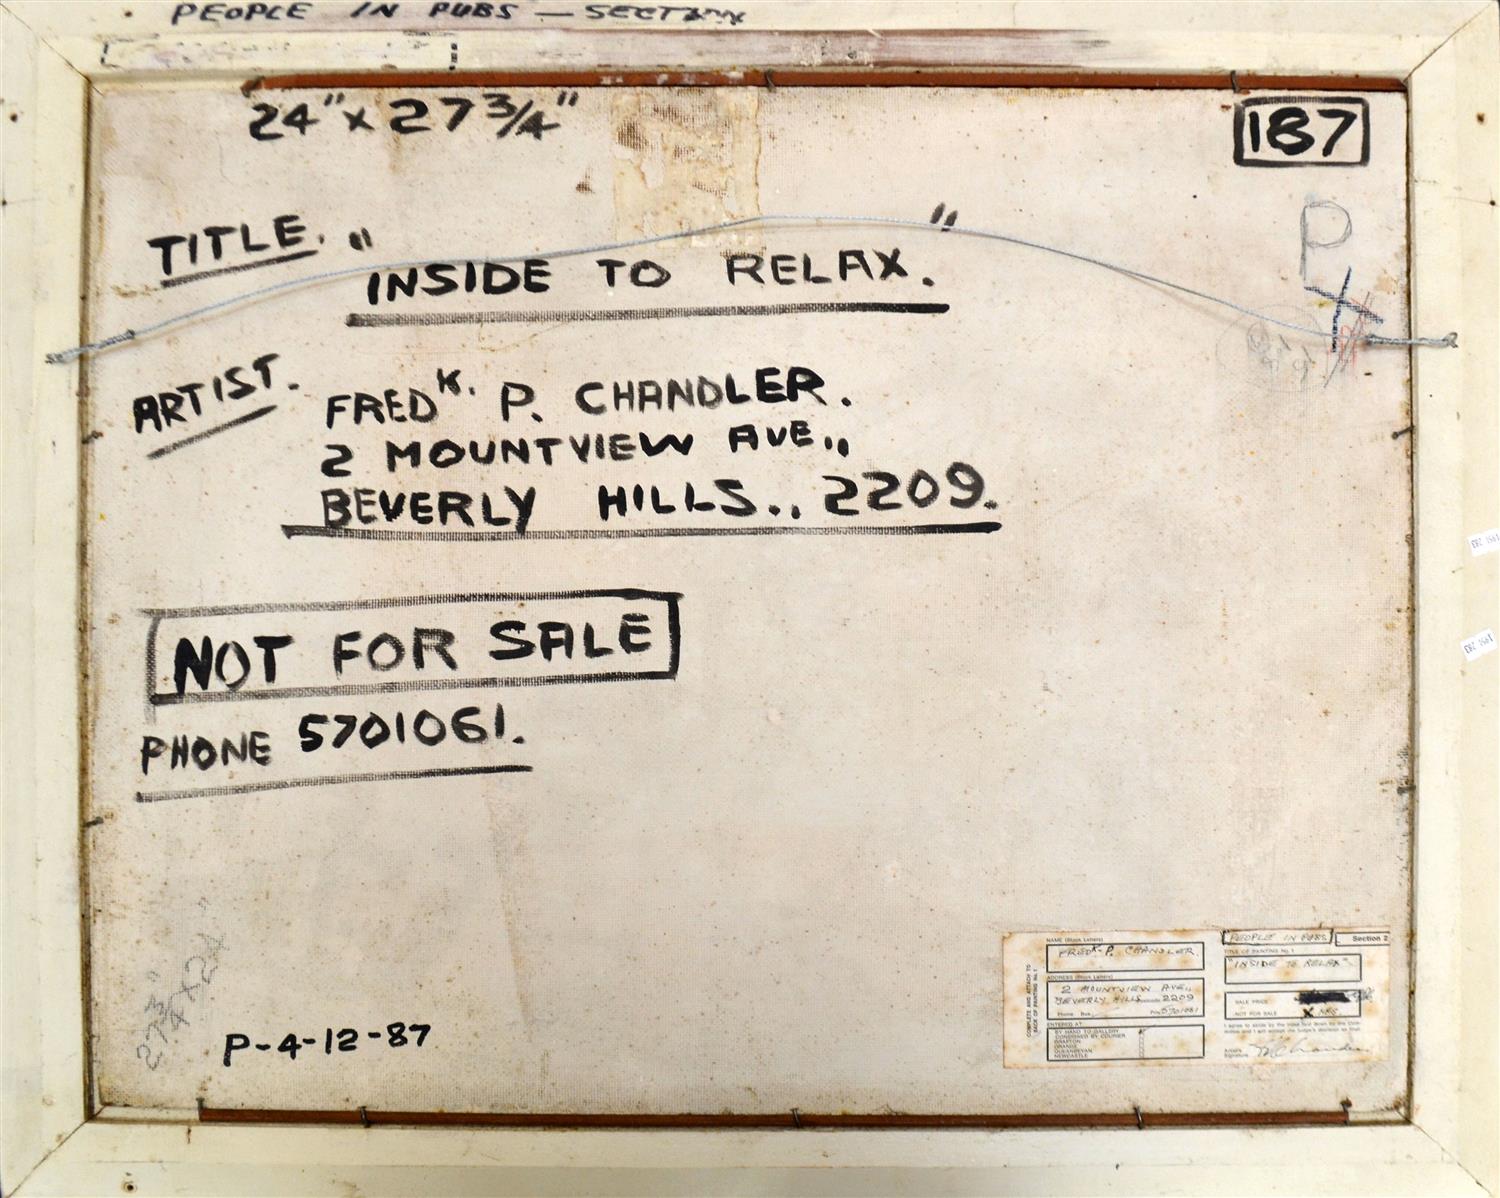 PEOPLE IN PUBS — SECTION
24" x 27 3/4"
187
TITLE. "INSIDE TO RELAX."
P
ARTIST. FREDK. P. CHANDLER.
2 MOUNTVIEW AVE.,
BEVERLY HILLS., 2209.
NOT FOR SALE
PHONE 5701061.
27 3/4" x 24"
P-4-12-87
1951 283
1951 283
COMPLETE AND ATTACH TO
BACK OF PAINTING No. 1
NAME (Block Letters)
FREDK P. CHANDLER.
ADDRESS (Block Letters)
2 MOUNTVIEW AVE.,
BEVERLY HILLS Postcode 2209
Phone Bus. Priv. 5701061
ENTERED AT
BY HAND TO GALLERY
CONDENSED BY COURIER
GRAFTON
ORANGE
QUEANBEYAN
NEWCASTLE
PEOPLE IN PUBS Section 2
TITLE OF PAINTING No. 1
"INSIDE TO RELAX".
SALE PRICE
NOT FOR SALE X NFS
I agree to abide by the rules laid down by the
and I will accept the Judge's decision as final.
Artist's
Signature